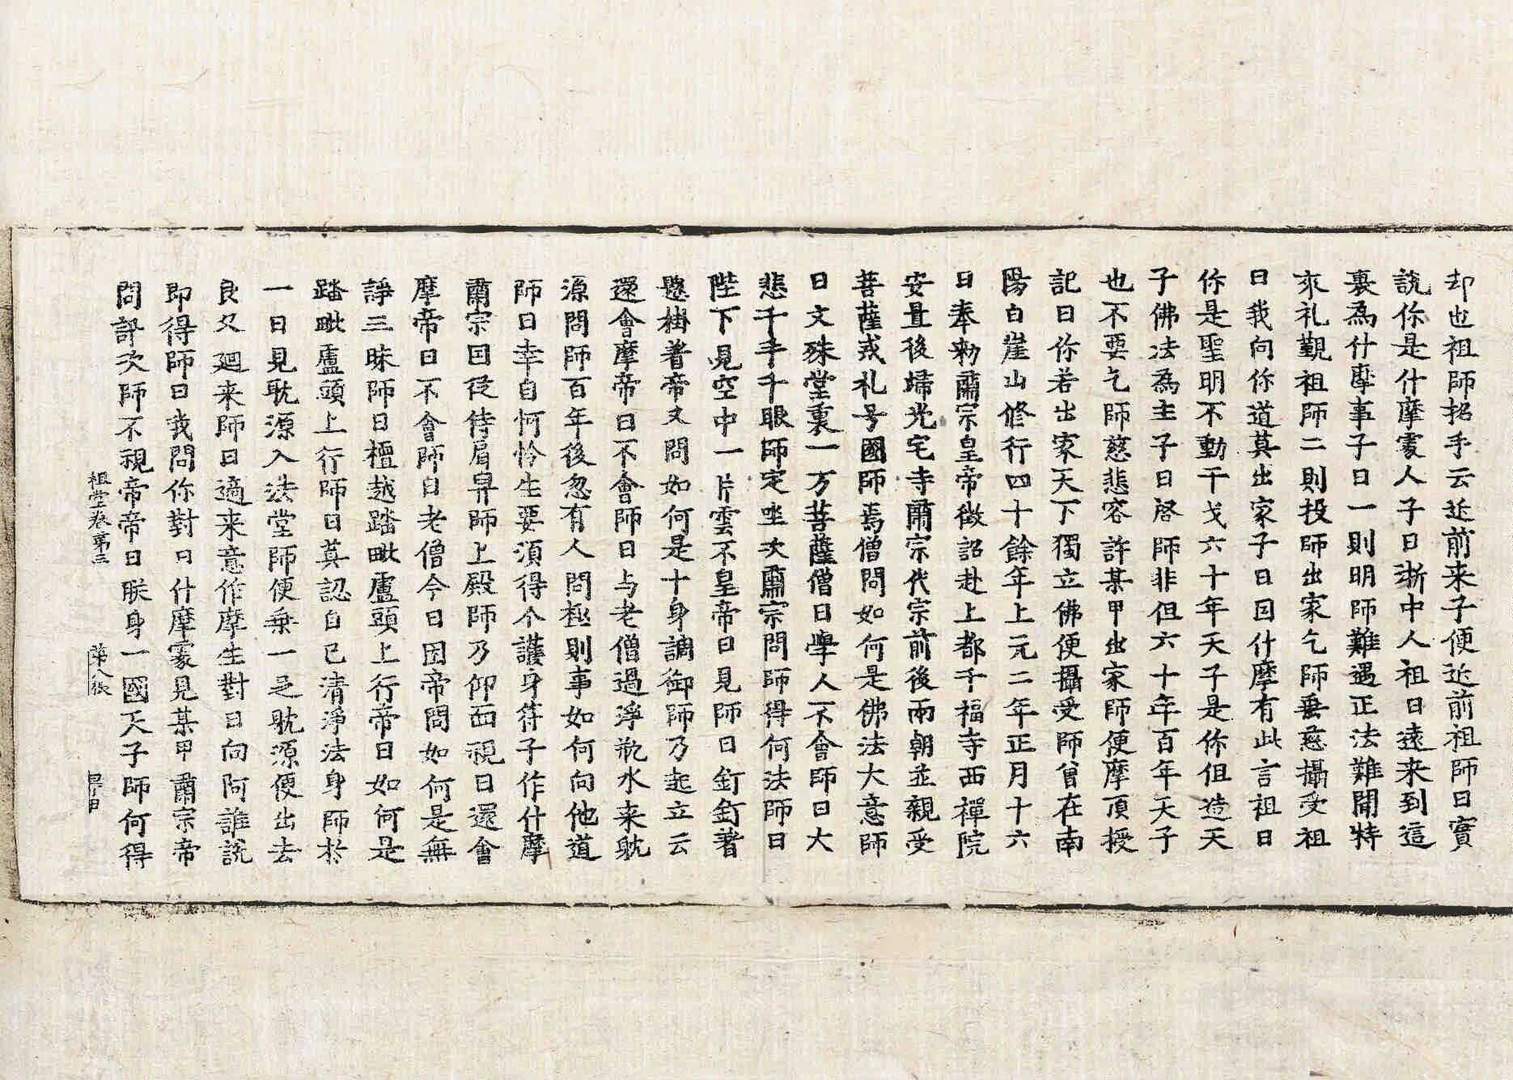 却也祖師招手云近前来子便近前祖師曰實
說你是什摩處人子曰浙中人祖曰遠来到這
裏為什摩事子曰一則明師難遇正法難聞特
来礼覲祖師二則投師出家乞師垂慈攝受祖
曰我向你道莫出家子曰因什摩有此言祖曰
你是聖明不動干戈六十年天子是你但造天
子佛法為主子曰啓師非但六十年百年天子
也不要乞師慈悲容許某甲出家師便摩頂授
記曰你若出家天下獨立佛便攝受師曾在南
陽白崖山修行四十餘年上元二年正月十六
日奉勑肅宗皇帝徵詔赴上都千福寺西禪院
安置後歸光宅寺肅宗代宗前後兩朝並親受
菩薩戒礼号國師焉僧問如何是佛法大意師
曰文殊堂裏一万菩薩僧曰學人不會師曰大
悲千手千眼師定坐次肅宗問師得何法師曰
陛下見空中一片雲不皇帝曰見師曰釘釘著
懸掛著帝又問如何是十身調御師乃起立云
還會摩帝曰不會師曰与老僧過淨瓶水来耽
源問師百年後忽有人問極則事如何向他道
師曰幸自可怜生要須得个護身符子作什摩
肅宗回從侍肩舁師上殿師乃仰面視曰還會
摩帝曰不會師曰老僧今日困帝問如何是無
諍三昧師曰檀越踏毗盧頭上行帝曰如何是
踏毗盧頭上行師曰莫認自己清淨法身師於
一日見耽源入法堂師便垂一足耽源便出去
良久迴来師曰適来意作摩生對曰向阿誰說
即得師曰我問你對曰什摩處見某甲肅宗帝
問評次師不視帝帝曰朕身一國天子師何得
祖堂卷第三 第八張